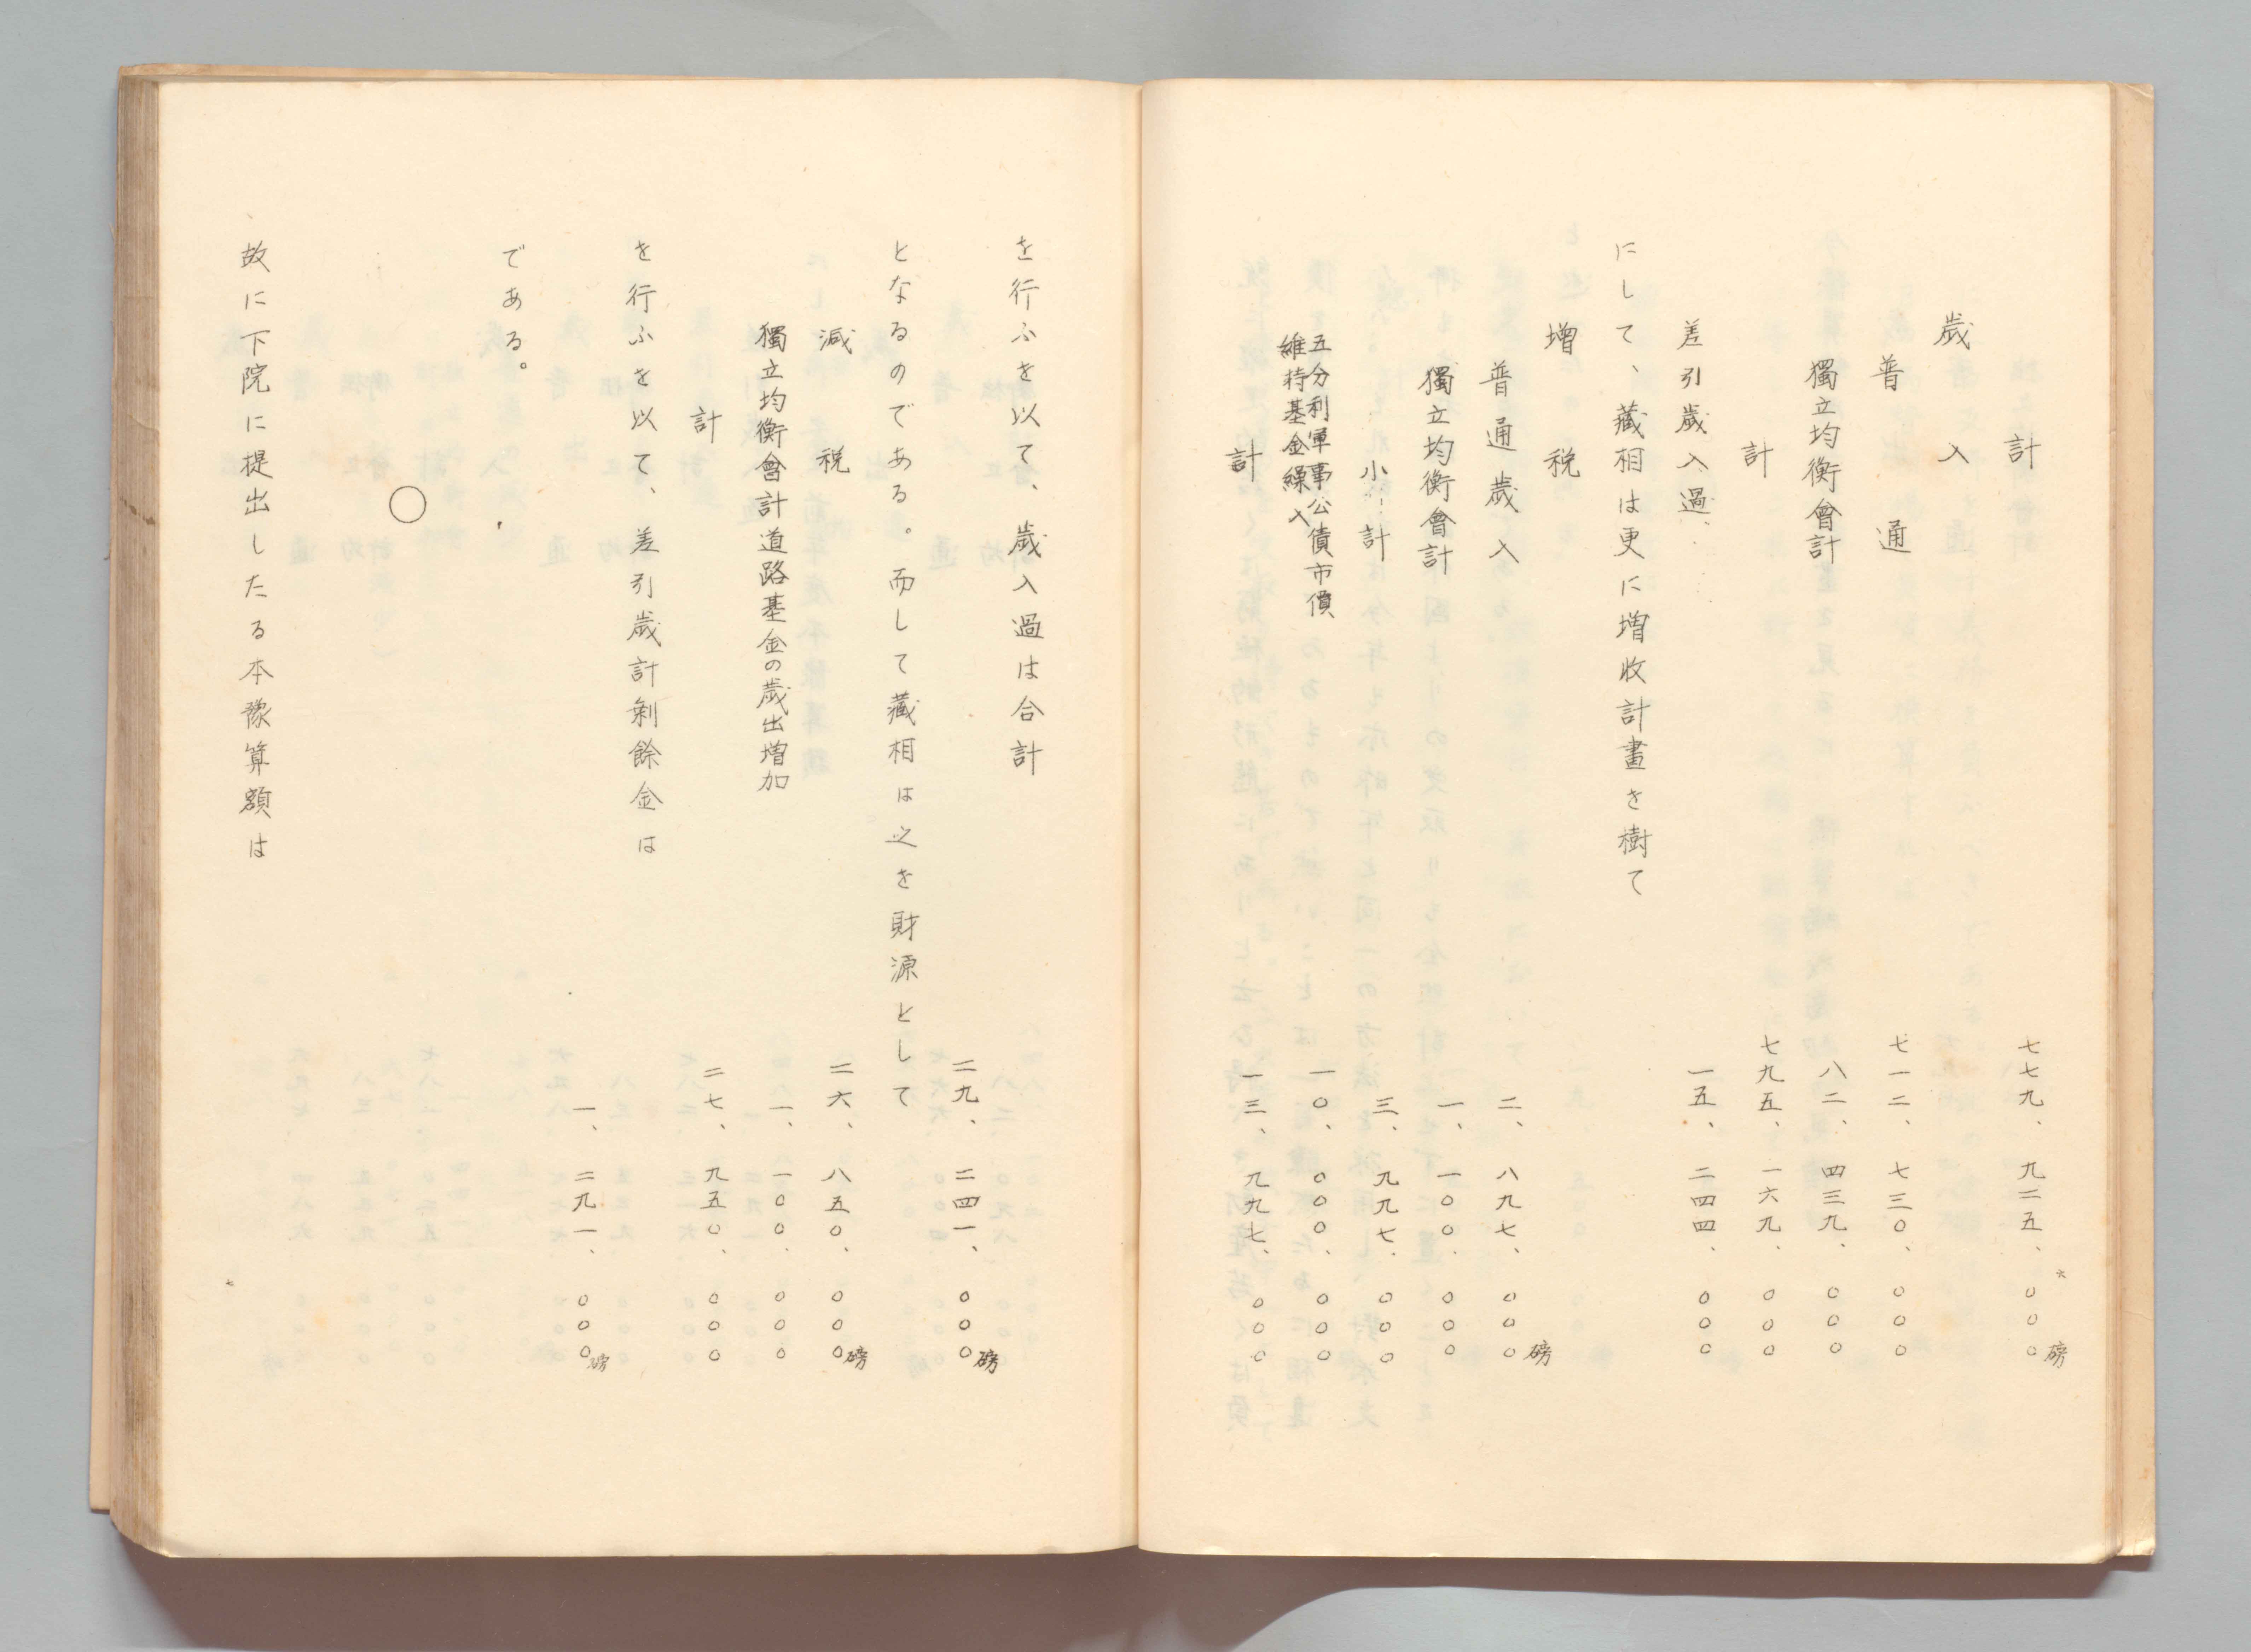 計 七七九、九二五、〇〇〇磅
歳入
普通 七一二、七三〇、〇〇〇
獨立均衡會計 八二、四三九、〇〇〇
計 七九五、一六九、〇〇〇
差引歳入過 一五、二四四、〇〇〇
にして、藏相は更に増收計畫を樹て
増税
普通歳入 二、八九七、〇〇〇磅
獨立均衡會計 一、一〇〇、〇〇〇
小計 三、九九七、〇〇〇
五分利軍事公債市價
維持基金繰入 一〇、〇〇〇、〇〇〇
計 一三、九九七、〇〇〇
を行ふを以て、歳入過は合計
二九、二四一、〇〇〇磅
となるのである。而して藏相は之を財源として
減税 二六、八五〇、〇〇〇磅
獨立均衡會計道路基金の歳出増加 一、一〇〇、〇〇〇
計 二七、九五〇、〇〇〇
を行ふを以て、差引歳計剰餘金は
一、二九一、〇〇〇磅
である。
〇
故に下院に提出したる本豫算額は